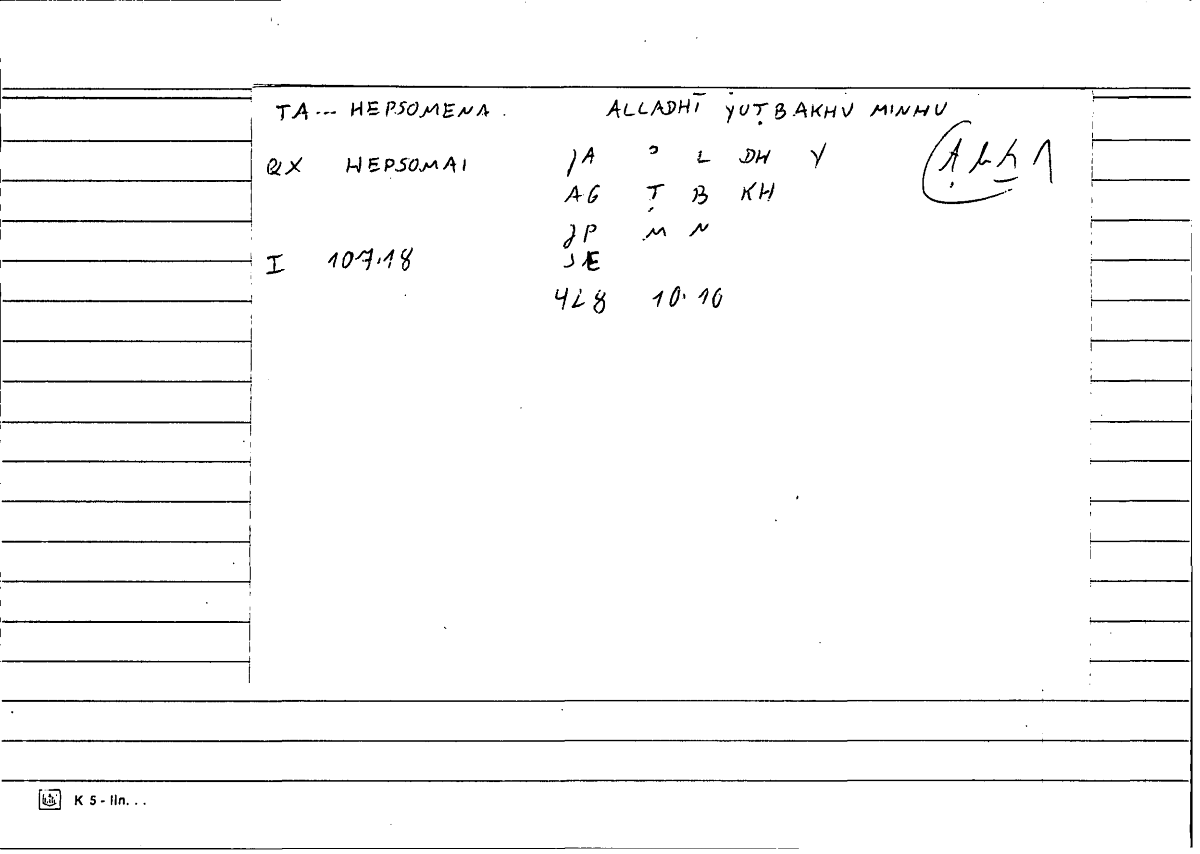 TA... HEPSOMENA. ALLADHĪ YUṬBAKHU MINHU
QX HEPSOMAI JA ʾ L DH Y
AG Ṭ B KH
JP M N
I 107.18 JE
418 10.10
K 5 - lln. . .